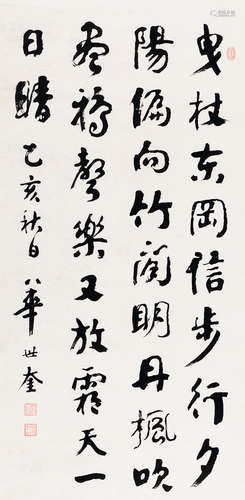 曳杖東岡信步行夕
陽偏向竹間明丹楓吹
盡鴉聲樂又放霜天一
日晴 乙亥秋日 華世奎